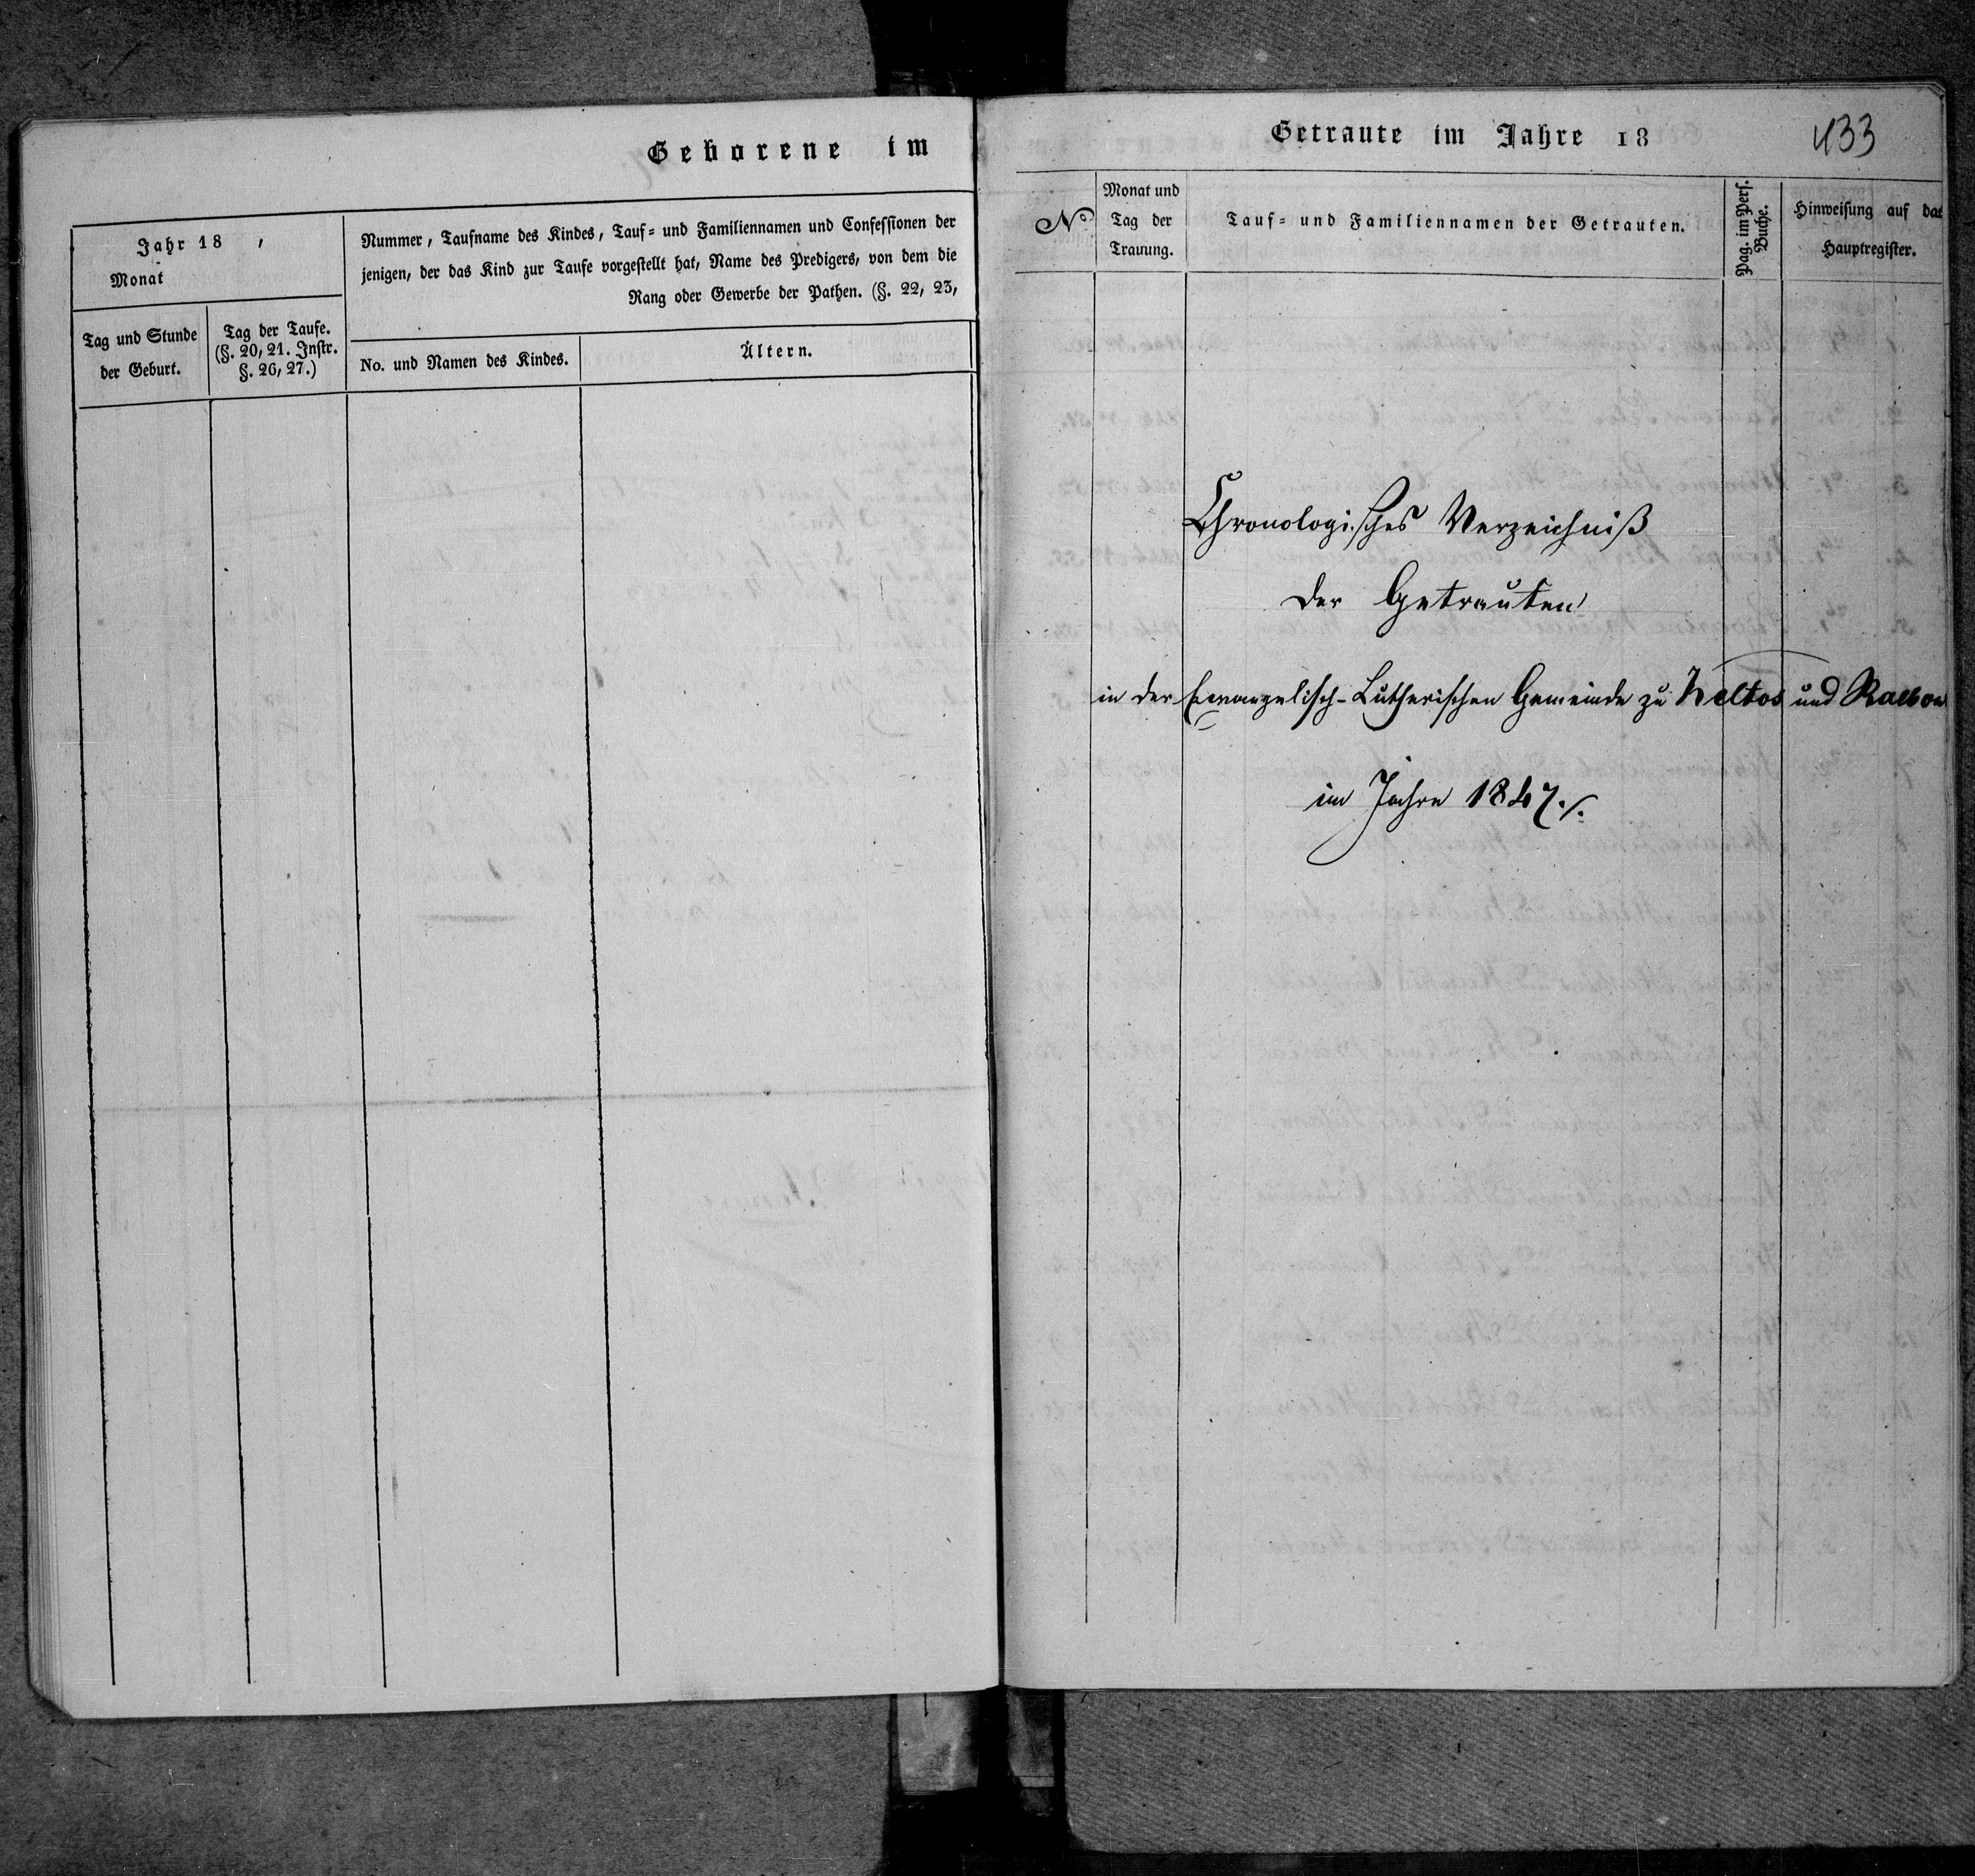 Geborene im
Jahr 18 ,
Monat
Nummer, Taufname des Kindes, Tauf- und Familiennamen und Confessionen der
jenigen, der das Kind zur Taufe vorgestellt hat, Name des Predigers, von dem die
Rang oder Gewerbe der Pathen. (§. 22, 23,
Tag und Stunde
der Geburt.
Tag der Taufe.
(§. 20, 21. Instr.
§. 26, 27.)
No. und Namen des Kindes.
Ältern.
Getraute im Jahre 18
433
No
Monat und
Tag der
Trauung.
Tauf- und Familiennamen der Getrauten.
Pag. im Pers.
Buche.
Hinweisung auf das
Hauptregister.
Chronologisches Verzeichniß
der Getrauten
in der Evangelisch-Lutherischen Gemeinde zu Keltos und
im Jahre 1847./.